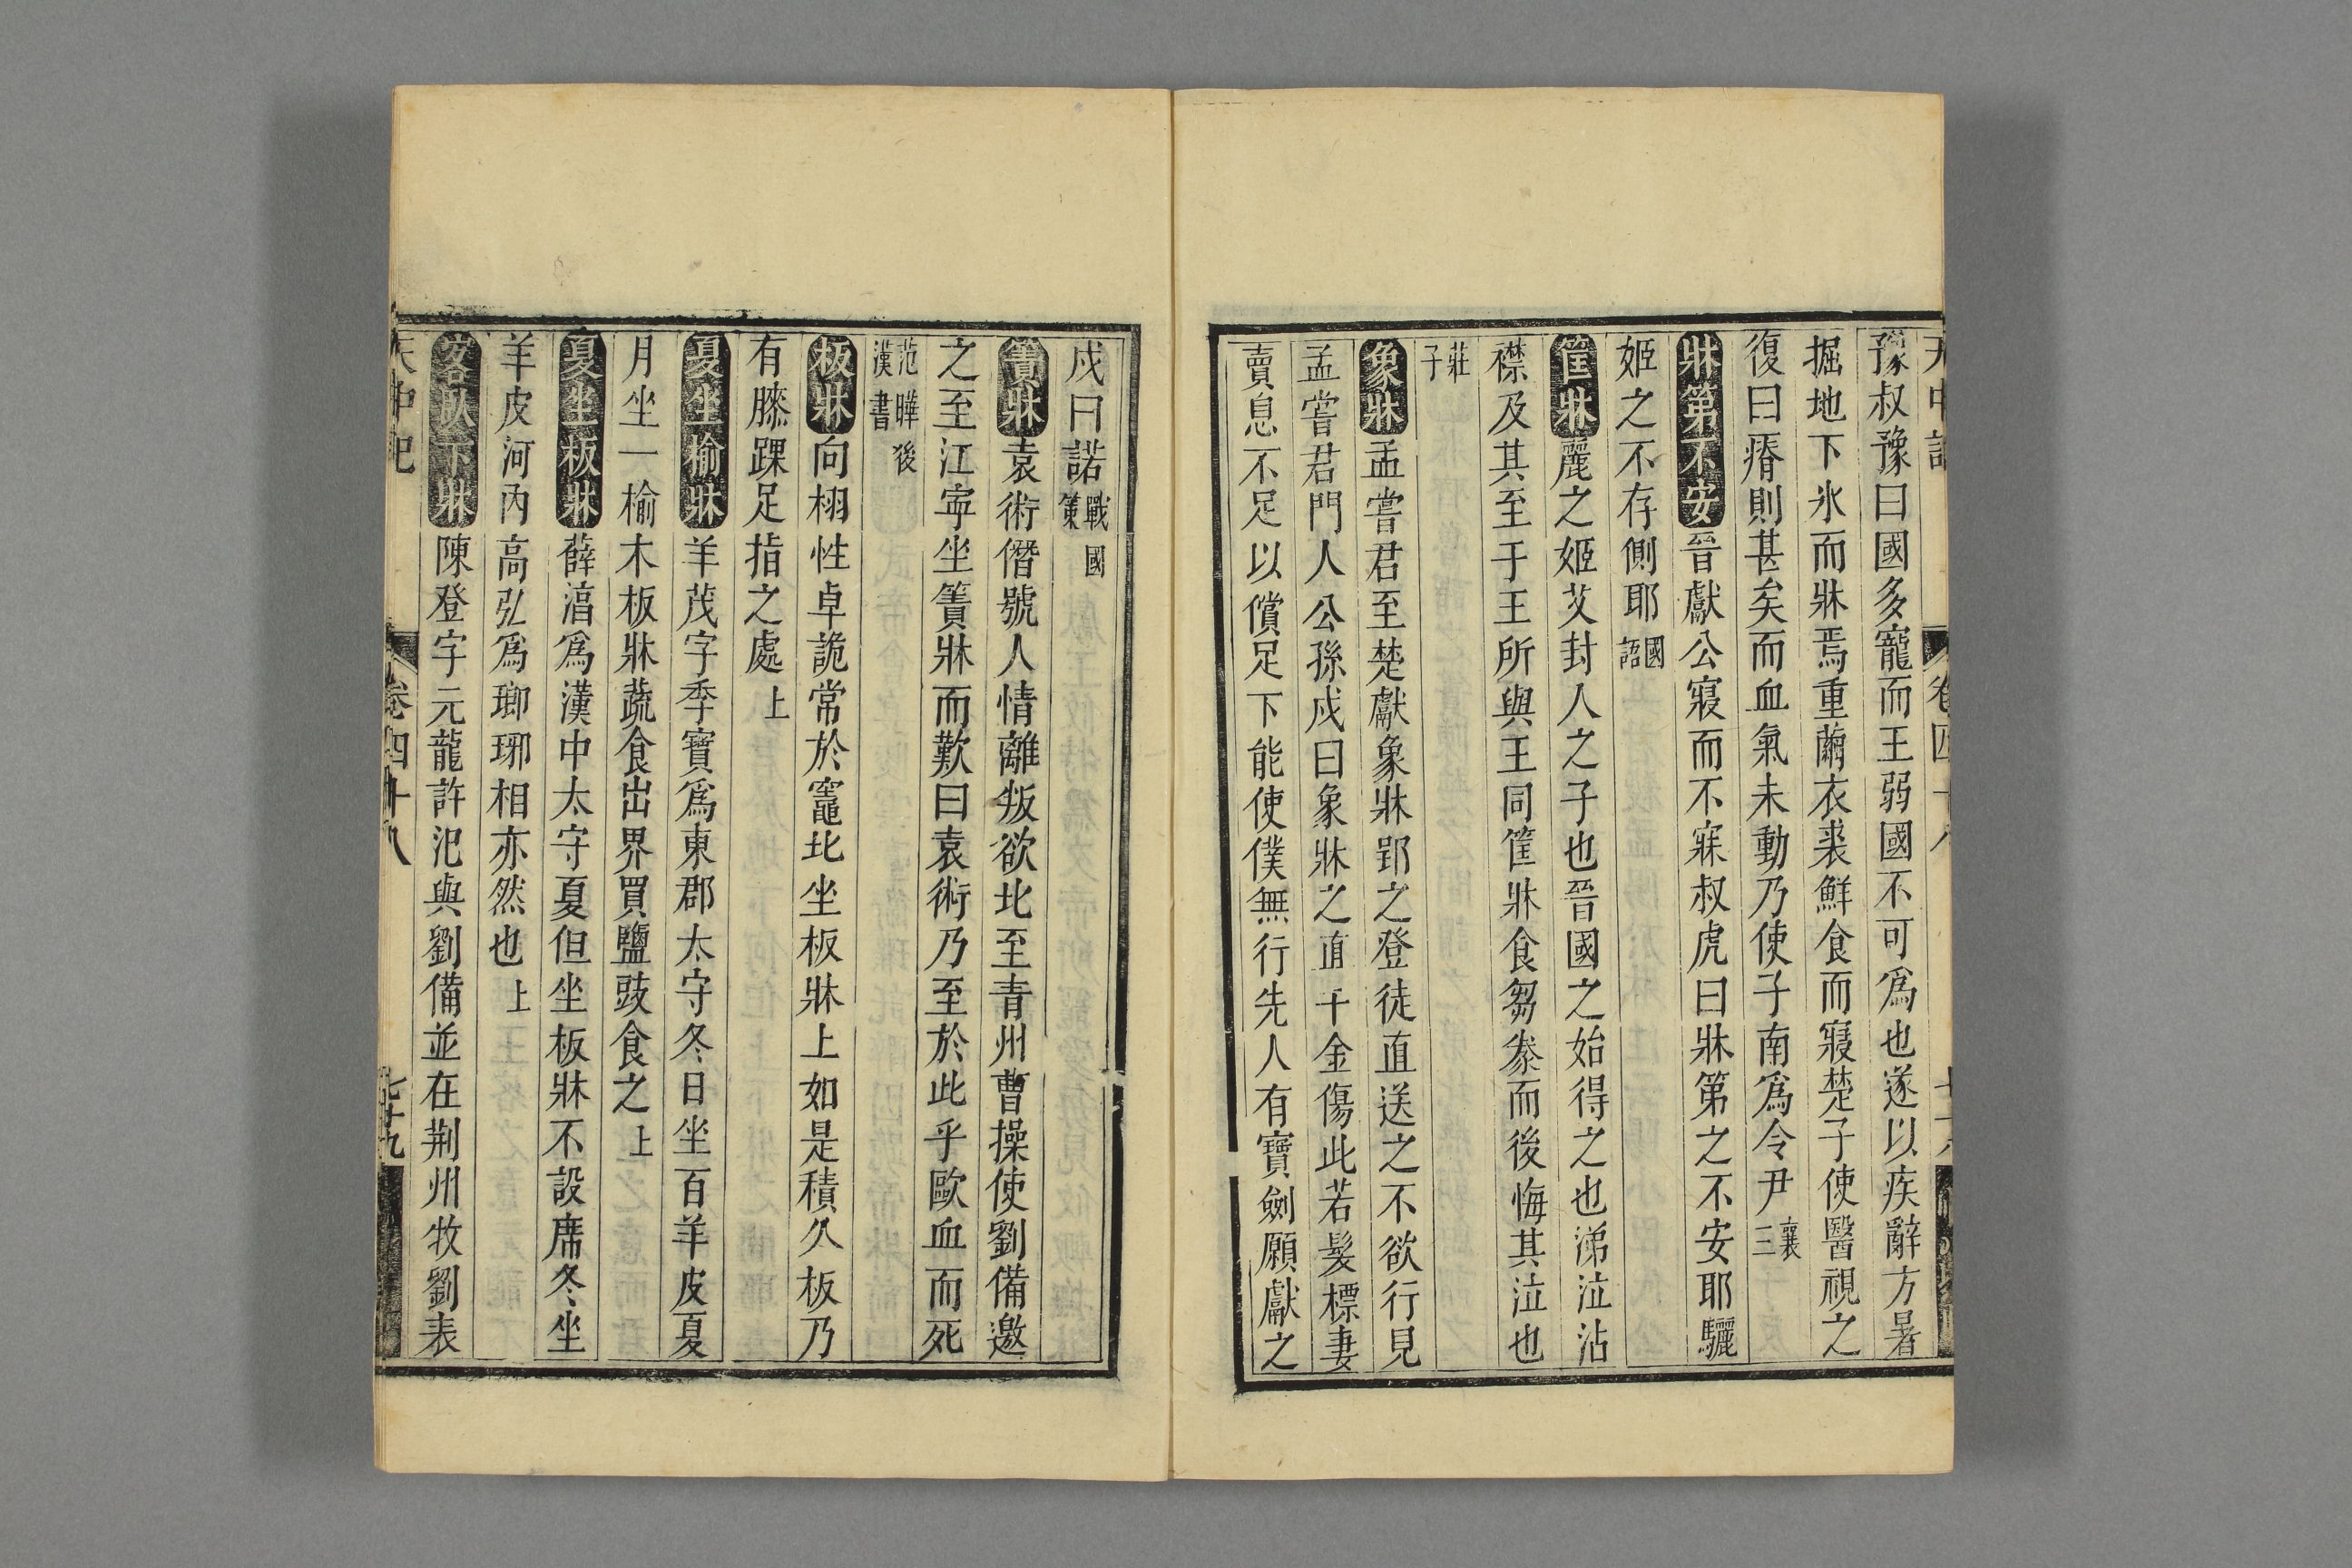 豫叔豫曰國多寵而王弱國不可爲也遂以疾辭方暑
掘地下氷而牀焉重繭衣裘鮮食而寢楚子使醫視之
復曰瘠則甚矣而血氣未動乃使子南爲令尹襄三
牀第不安晉獻公寢而不寐叔虎曰牀第之不安耶驪
姬之不存側耶國語
筐牀麗之姬艾封人之子也晉國之始得之也涕泣沾
襟及其至于王所與王同筐牀食芻豢而後悔其泣也
莊子
象牀孟嘗君至楚獻象牀郢之登徒直送之不欲行見
孟嘗君門人公孫戍曰象牀之直千金傷此若髮標妻
賣息不足以償足下能使僕無行先人有寶劍願獻之
戍曰諾戰國策
簀牀袁術僭號人情離叛欲北至青州曹操使劉備邀
之至江寧坐簀牀而歎曰袁術乃至於此乎歐血而死
范曄後漢書
板牀向栩性卓詭常於竈北坐板牀上如是積久板乃
有膝踝足指之處上
夏坐榆牀羊茂字季寶爲東郡太守冬日坐百羊皮夏
月坐一榆木板牀蔬食出界買鹽豉食之上
夏坐板牀薛漘爲漢中太守夏但坐板牀不設席冬坐
羊皮河內高弘爲瑯琊相亦然也上
客臥下牀陳登字元龍許汜與劉備並在荆州牧劉表
天中記
卷四十八
七十九